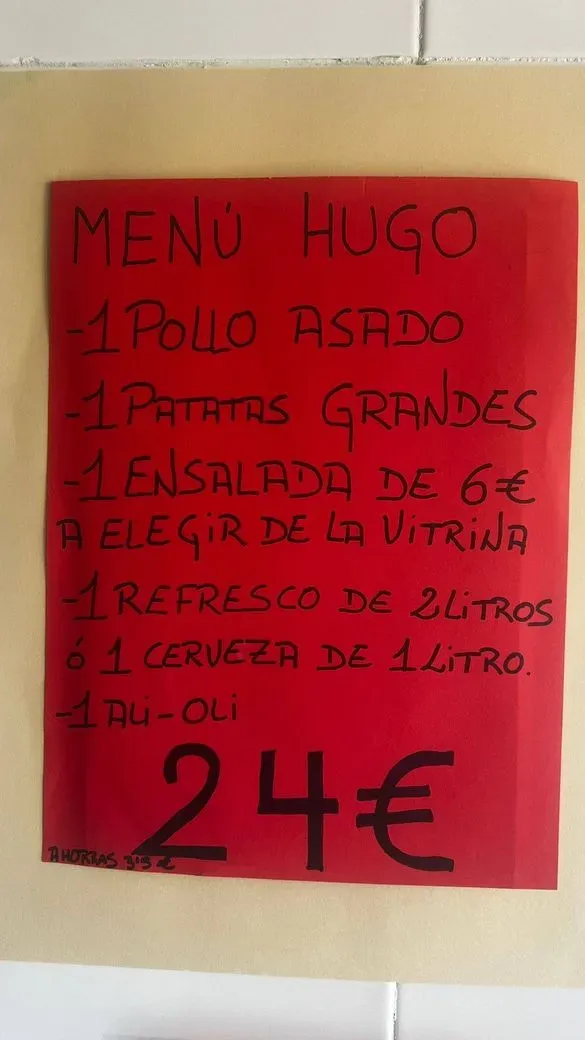 MENÚ HUGO
-1 POLLO ASADO
-1 PATATAS GRANDES
-1 ENSALADA DE 6€
A ELEGIR DE LA VITRINA
-1 REFRESCO DE 2LITROS
ó 1 CERVEZA DE 1 LITRO.
-1 ALI-OLI
24€
AHORRAS 3'5 €